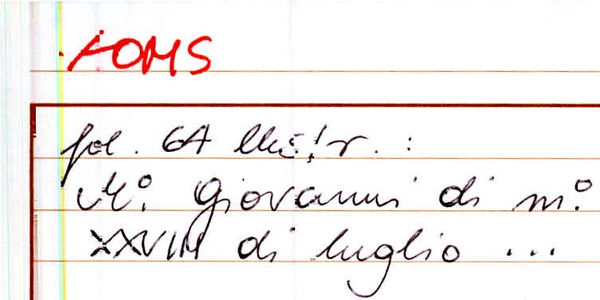 AOMS
fol. 64 r. :
M.° Giovanni di m.°
XXVIII di luglio ...